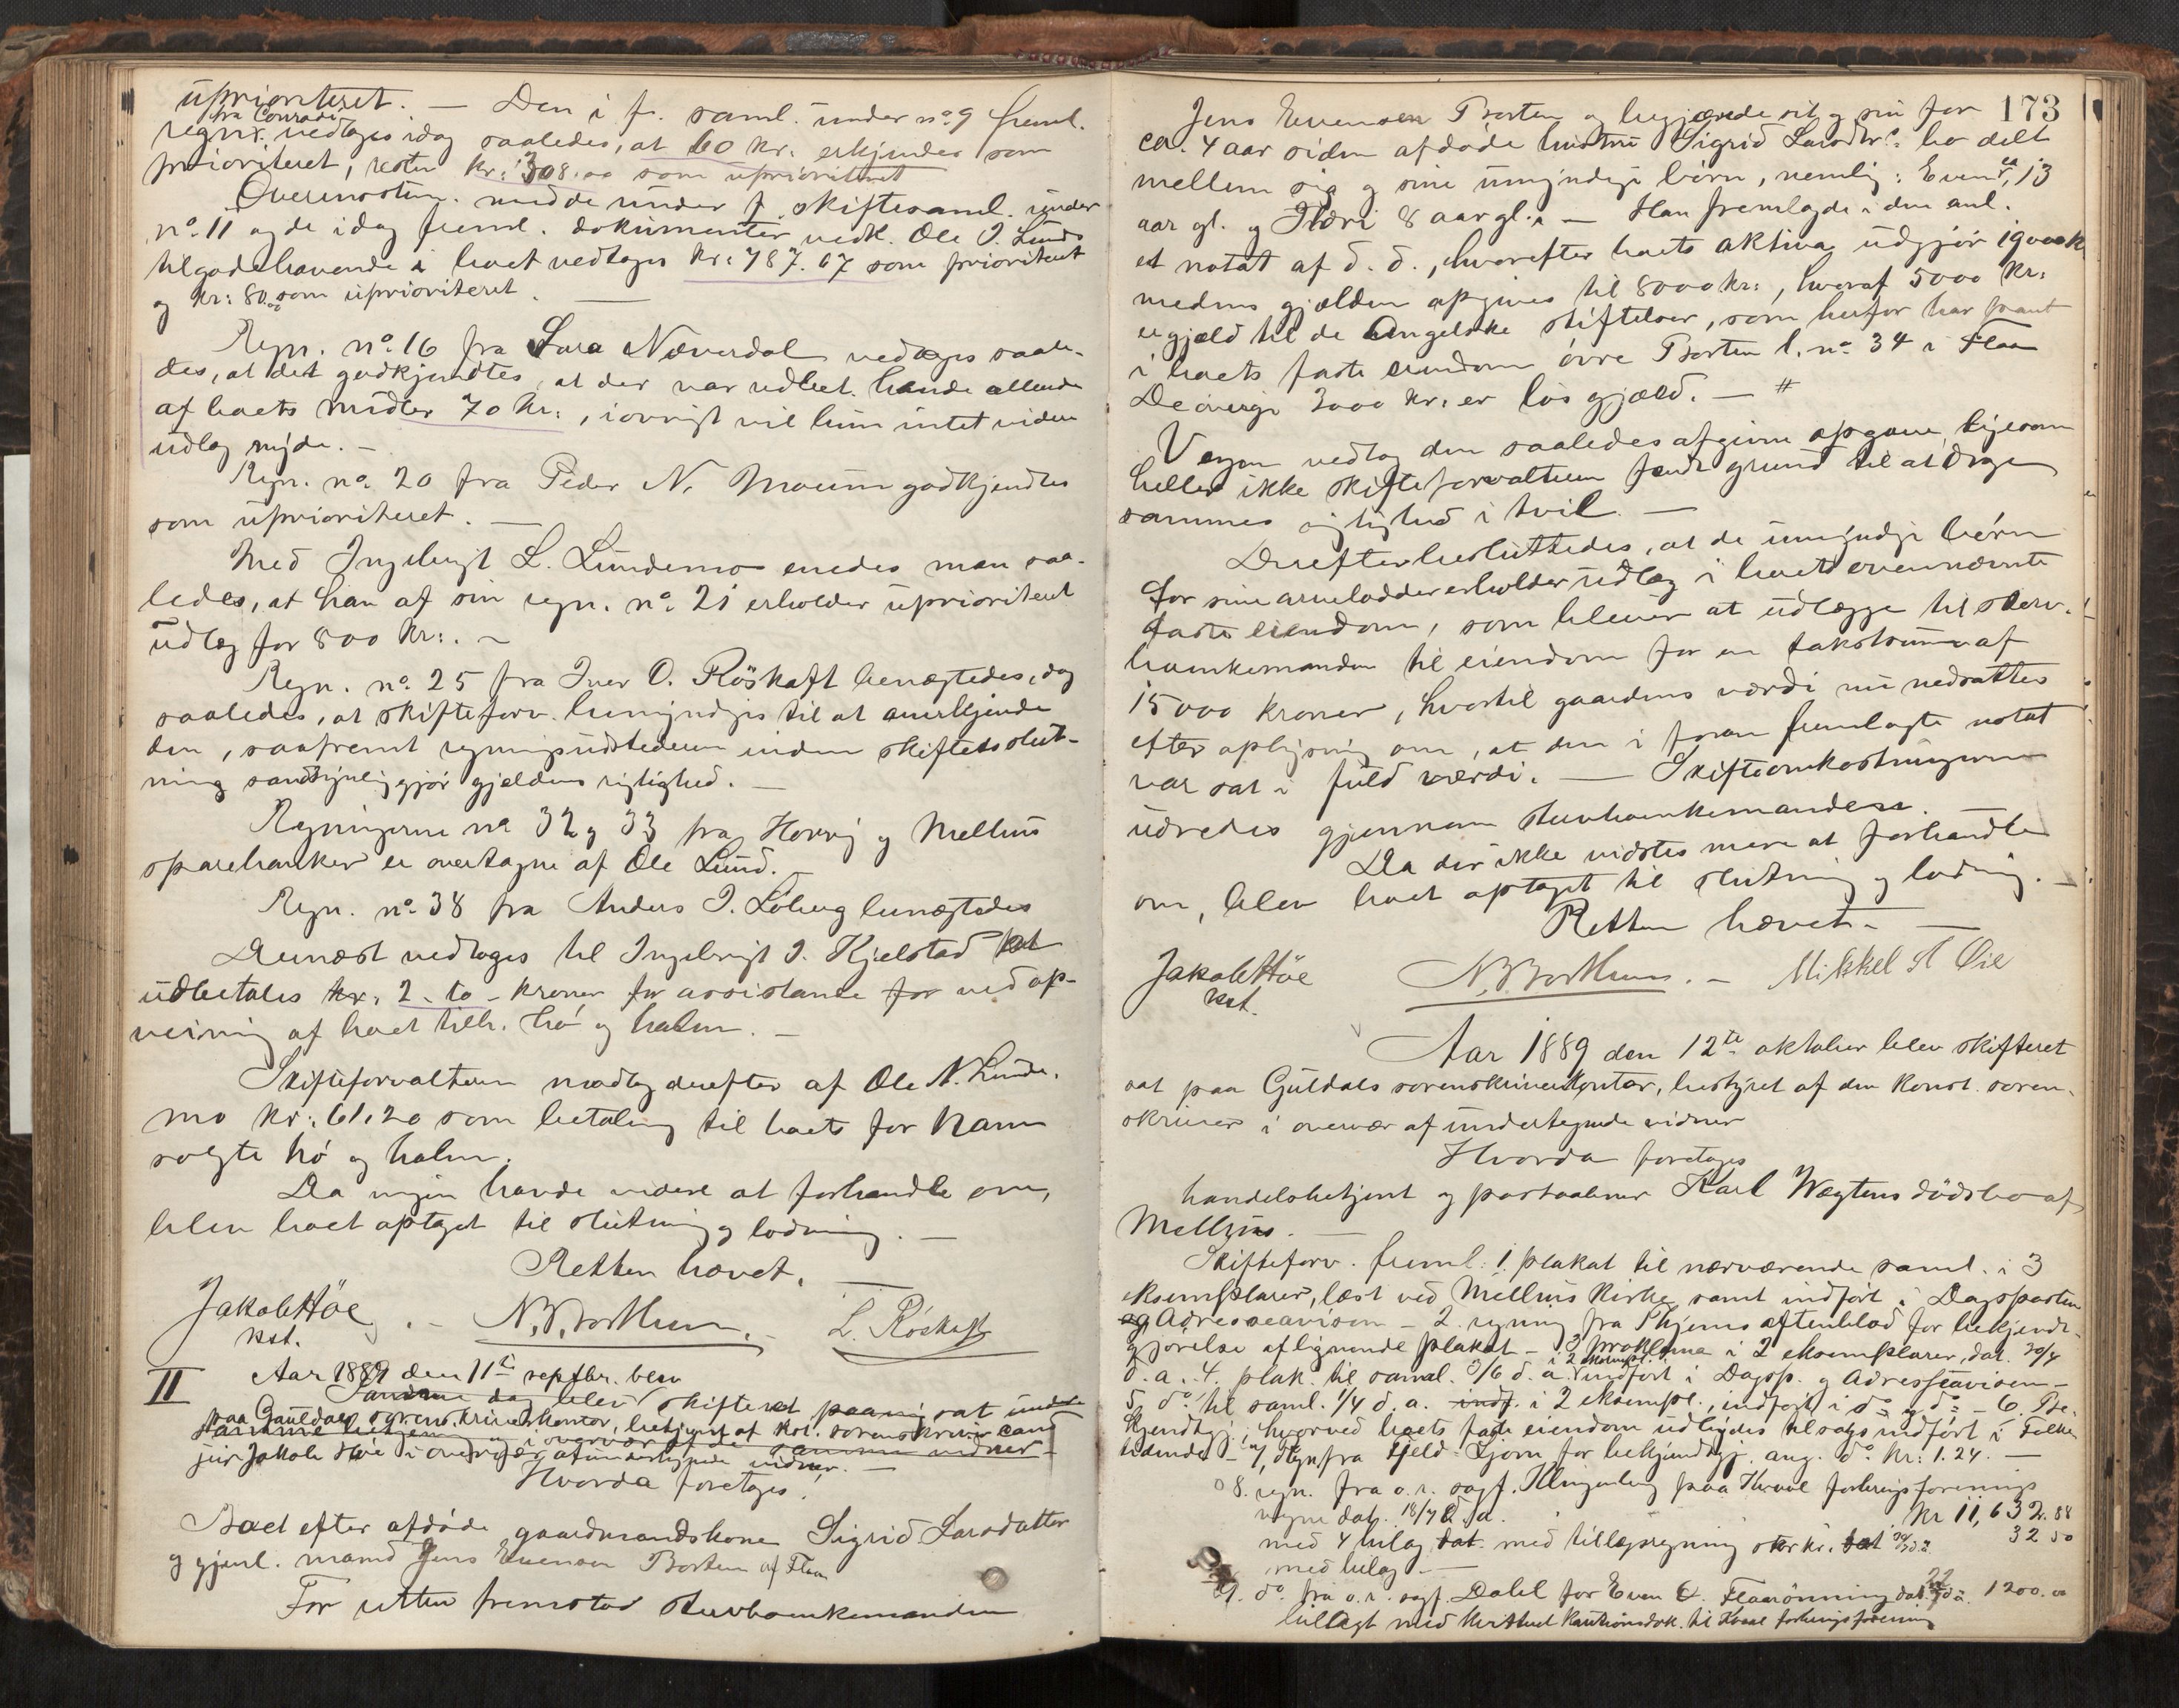 üprioriteret. — Den i f. saml. under no 9 freml.
fra Conradi
regn. vedtages idag saaledes, at 60 kr. erkjendes som
prioriteret, resten kr: 308.00 som üprioriteret
no. 11 og de idag freml. dokümenter vedk. Ole J. Lunds
tilgodehavende i boet vedtages kr: 787.67 som prioriteret
og kr: 80.00 som üprioriteret. —
Regn. no. 16 fra Lara Næverdal vedtages saale-
des, at det godkjendtes, at der var udbet. hende allende
af boets midler 70 kr:, iøvrigt vil hün intet videre
üdlæg nyde. —
Regn. no. 20 fra Peder N. Moum godkjendtes
som üprioriteret. —
Med Ingebrigt L. Lündemo enedes man saa-
ledes, at han af sin regn. no. 21 erholder üprioriteret
üdlæg for 800 kr:. —
Regn. no. 25 fra Iver O. Röskaft benægtedes, dog
saaledes, at skifteforv. bemyndiges til at anerkjende
den, saafremt regningsüdstederen inden skiftets slüt-
ning sandsynliggjør gjeldens rigtighed. —
Regningerne no 32 og 33 fra Horrig og Melhüs
sparebanker er overtagne af Ole Lünd.
Regn. no. 38 fra Anders J. Løberg benægtedes
Dernæst vedtoges til Ingebrigt J. Kjelstad at
üdbetales kr. 2 - to - kroner for assistance for ved op-
veining af boet tilh. hø og halm. —
Skifteforvalteren modtog derefter af Ole N. Lünde-
mo kr: 61.20 som betaling til boets for ham
solgte hø og halm.
Da ingen havde videre at forhandle om,
blev boet optaget til slütning og lodning. —
Retten hævet.
Jakob Høe
kst.
L. Röskaft
II Aar 1889 den 11te septbr. blev
Samme dag blev skifteret paany sat ünder
paa Gauldals sorenskriverkontor, betjent af kst. sorenskriver cand
jür. Jakob Høe i overvær af undertegnede vidner. —
Hvorda foretoges:
Boet efter afdøde gaardmandskone Sigrid Larsdatter
og gjenl. mand Jens Evensen Borten af Flaa
For retten fremstod sterboenkemanden
173
Jens Evensen Borten og begjærede sit og sin for
ca. 4 aar siden afdøde hustrü Sigrid Larsdtrs. bo delt
mellem sig og sine ümyndige børn, nemlig: Even ca 13
aar gl. og 8 aar gl. — Han fremlagde i den anl.
et notat af d. d., hvorefter boets aktiva üdgjør 19000 kr
medens gjælden opgives til 8000 kr:, hvoraf 5000 kr:
er gjæld til de Angelske stiftelser, som herfor har pant
i boets faste eiendom øvre Borten l. no. 34 i Flaa
De øvrige 3000 kr: er løs gjæld. — #
Vergen vedtog den saaledes afgivne opgave, ligesom
heller ikke skifteforvalteren fandt grund til at drage
sammes rigtighed i tvil. —
Derefter beslüttedes, at de ümyndige børn
for sine arvelodder erholder üdlæg i boets ovennævnte
faste eiendom, som bliver at üdlægge til sterv-
boenkemanden til eiendom for en takstsum af
15000 kroner, hvortil gaardens værdi nü nedsattes
efter oplysning om, at den i foran fremlagte notat
var sat i füld værdi. — Skifteomkostningerne
üdredes gjennem stervboenkemanden.
Da der ikke vidstes mere at forhandle
om, blev boet optaget til slütning og lodning. —
Retten hævet. —
Jakob Høe
kst.
Mikkel A Øie
Aar 1889 den 12te oktober blev skifteret
sat paa Guldals sorenskriverkontor, bestyret af den konst. soren-
skriver i overvær af ündertegnede vidner
Hvorda foretoges
handelsbetjent og postaabner Karl Wægtens dödsbo af
Melhus. —
Skifteforv. freml. 1. plakat til nærværende saml. i 3
eksemplarer, læst ved Melhus kirke samt indført i Dagsposten
og Adresseavisen — 2. regning fra Thjems aftenblad for bekjendt-
gjørelse af lignende plakat — 3 proklama i 2 eksemplarer, dat. 30/4
d. a. 4. plak. til saml. 3/6 d. a. i 2 eksempl. indført i Dagsp. og Adresseavisen —
5. do. til saml. 1/4 d. a. indf. i 2 eksempl., indført i do og do. — 6. Be-
kjendtgj., hvorved boets faste eiendom üdbydes tilsalgs indført i Folke-
tidende — 7. Regn. fra for bekjendtgj. ang. do. kr: 1.24. —
8. regn. fra o. r. sagf. Klingenberg paa Hvaal forbrugsforenings
vegne dat. 18/4 d. a. kr 11,632.88
med 4 bilag dat. med tillægsregning stor kr. 32 50
med bilag —
9. do. fra o. r. sagf. Dahl for Even O. Flaarønning dat. 1200.00
billagt med kautionsdok. til Hvaal forbrugsforening